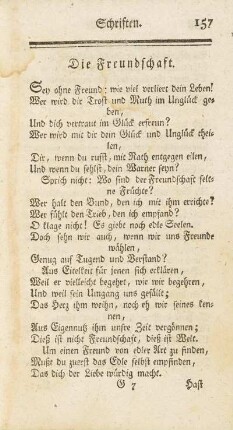 Schriften. 157
Die Freundschaft.
Sey ohne Freund: wie viel verliert dein Leben!
Wer wird dir Trost und Muth im Unglück ge-
ben,
Und dich vertraut im Glück erfreun?
Wer wird mit dir dein Glück und Unglück thei-
len,
Dir, wenn du rufst, mit Rath entgegen eilen,
Und wenn du fehlst, dein Warner seyn?
Sprich nicht: Wo sind der Freundschaft selt-
ne Früchte?
Wer halt den Bund, den ich mit ihm errichte?
Wer fühlt den Trieb, den ich empfand?
O klage nicht! Es giebt noch edle Seelen.
Doch sehn wir auch, wenn wir uns Freunde
wählen,
Genug auf Tugend und Verstand?
Aus Eitelkeit für jenen sich erklären,
Weil er vielleicht begehrt, wie wir begehren,
Und weil sein Umgang uns gefällt;
Das Herz ihm weihn, noch eh wir seines ken-
nen,
Aus Eigennutz ihm unsre Zeit vergönnen;
Dieß ist nicht Freundschaft, dieß ist Welt.
Um einen Freund von edler Art zu finden,
Mußt du zuerst das Edle selbst empfinden,
Das dich der Liebe würdig macht.
G 7 Hast